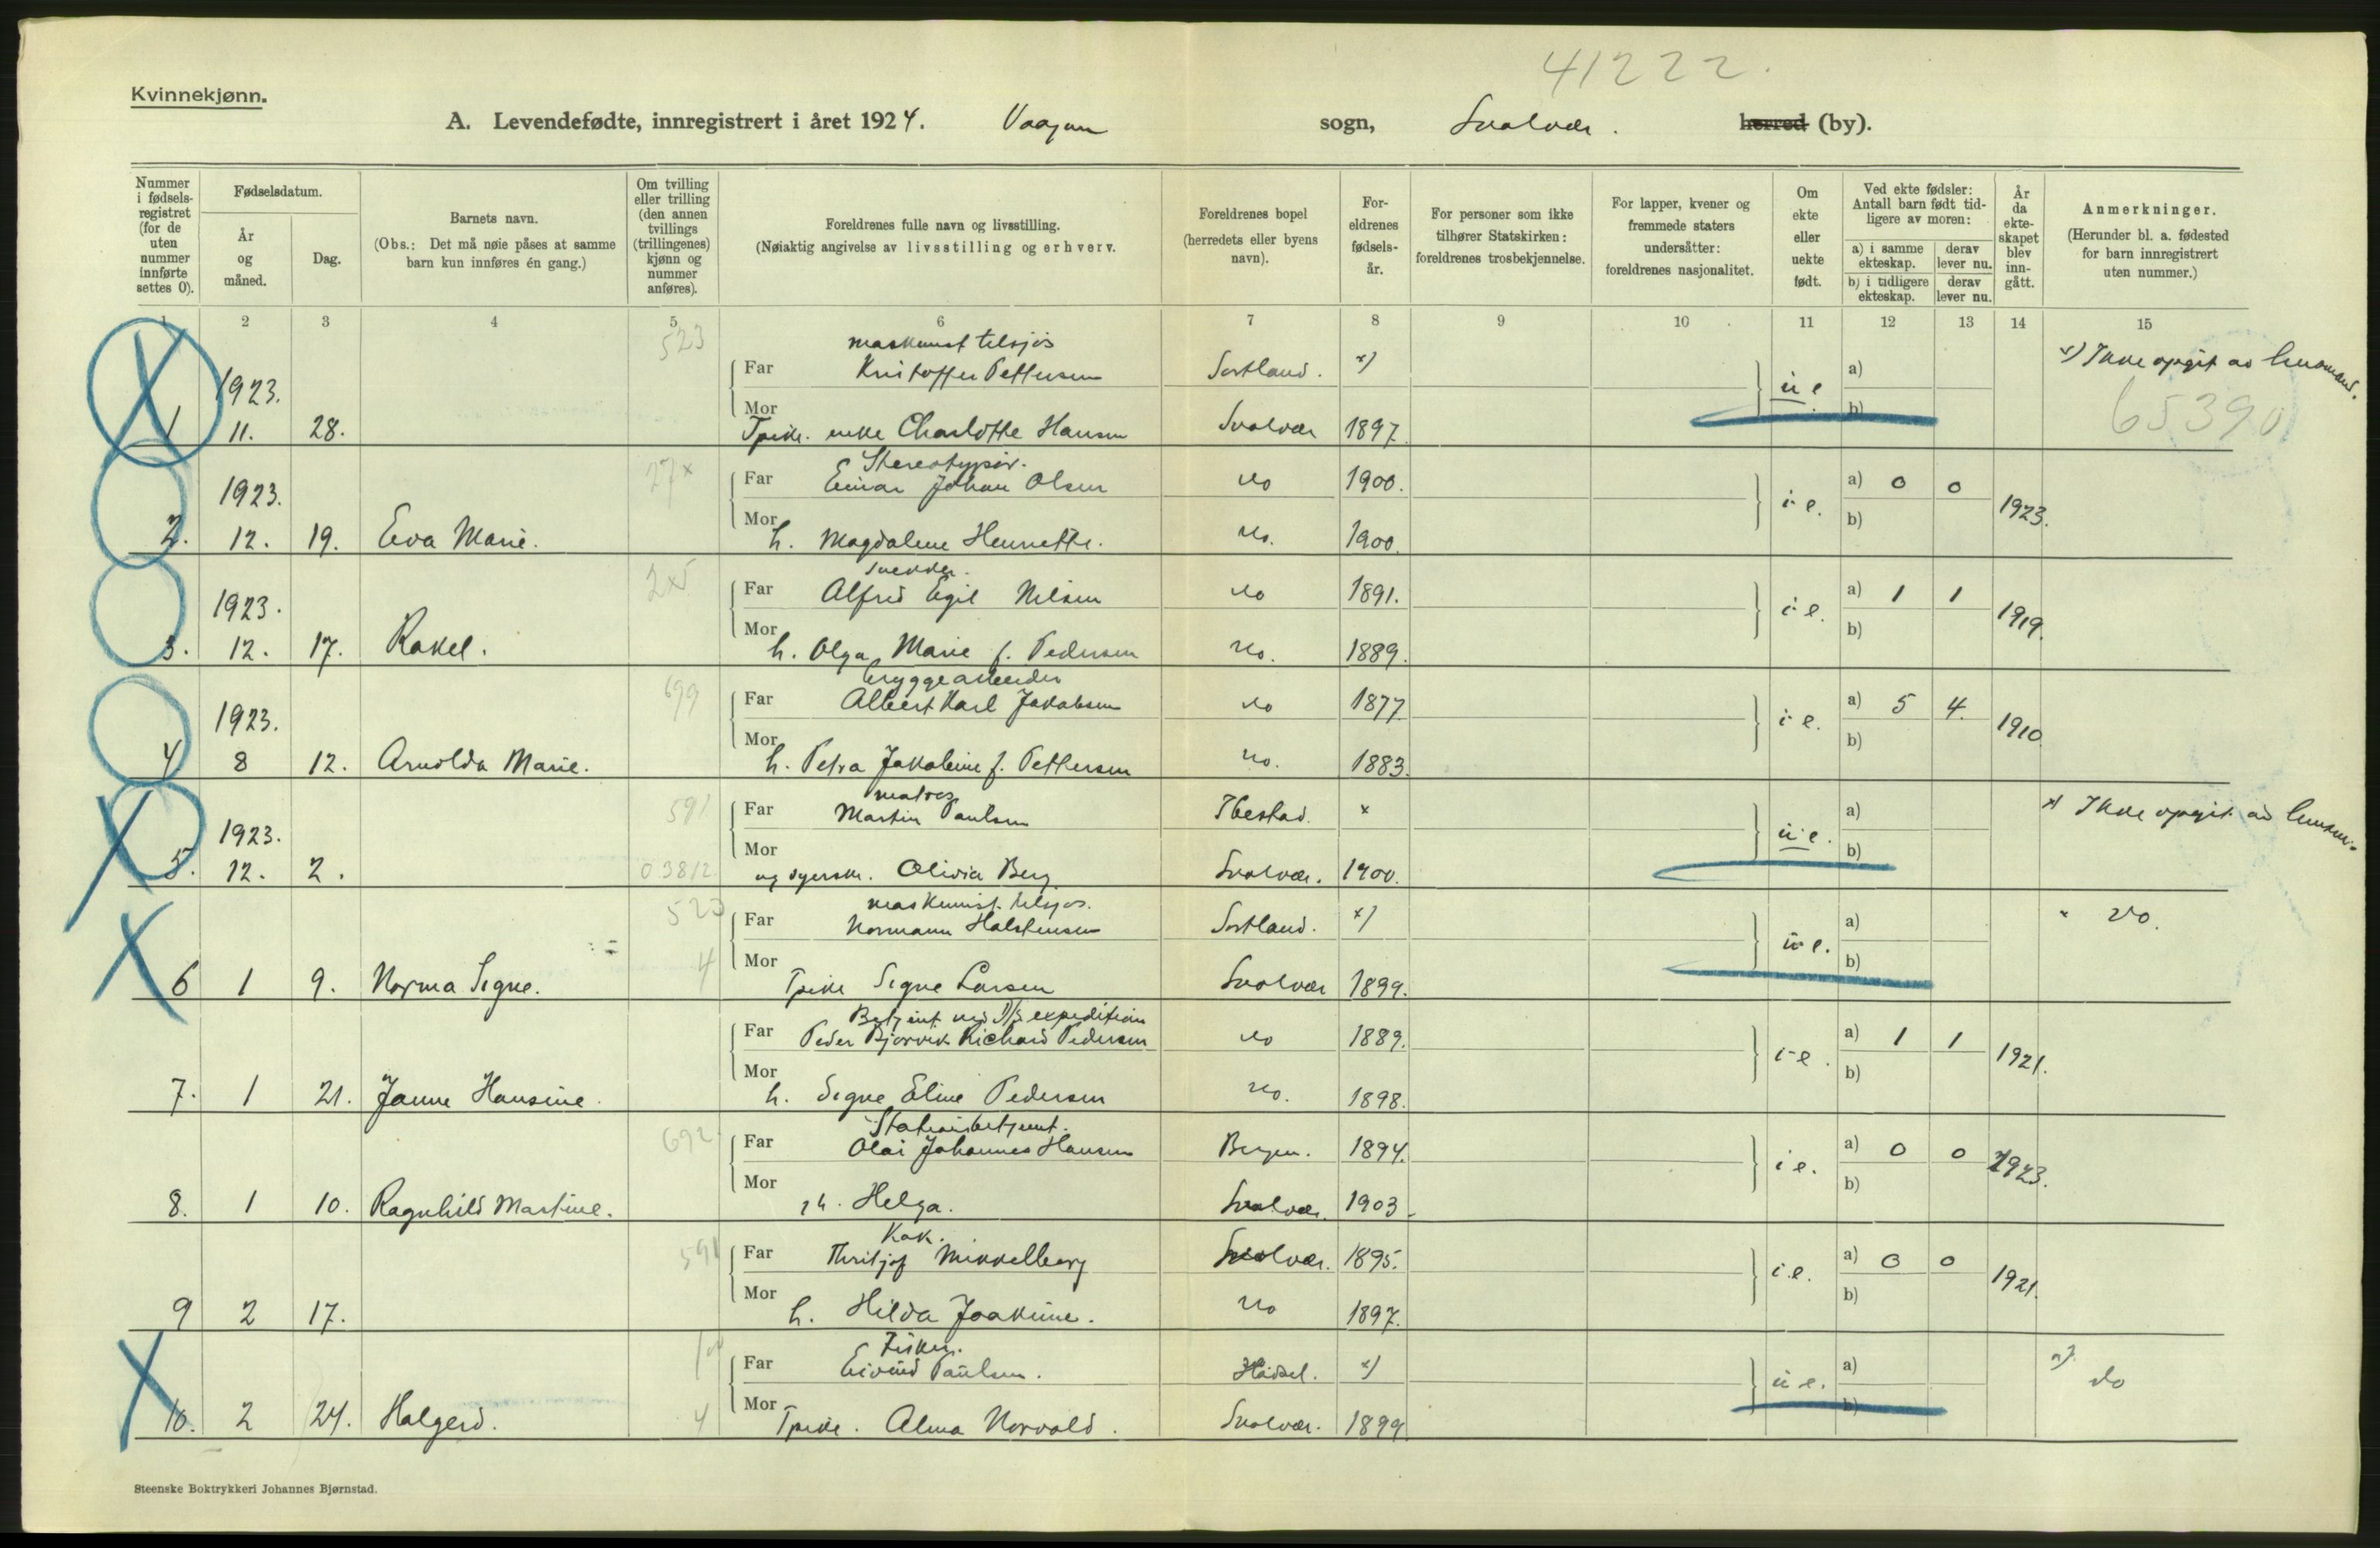 41222.
Kvinnekjønn.
A. Levendefødte, innregistrert i året 1924. Vaagan sogn, Svolvær. herred (by).
Nummer i fødselsregistret (for de uten nummer innførte settes 0).
Fødselsdatum.
År og måned.
Dag.
Barnets navn.
(Obs.: Det må nøie påses at samme barn kun innføres én gang.)
Om tvilling eller trilling (den annen tvillings (trillingenes) kjønn og nummer anføres).
Foreldrenes fulle navn og livsstilling.
(Nøiaktig angivelse av livsstilling og erhverv.
Foreldrenes bopel (herredets eller byens navn).
Foreldrenes fødselsår.
For personer som ikke tilhører Statskirken: foreldrenes trosbekjennelse.
For lapper, kvener og fremmede staters undersåtter: foreldrenes nasjonalitet.
Om ekte eller uekte født.
Ved ekte fødsler: Antall barn født tidligere av moren:
a) i samme ekteskap. derav lever nu.
b) i tidligere ekteskap. derav lever nu.
År da ekteskapet blev inngått.
Anmerkninger.
(Herunder bl. a. fødested for barn innregistrert uten nummer.)
1 2 3 4 5 6 7 8 9 10 11 12 13 14 15
523 maskinist tilsjøs
1923. Far Kristoffer Pettersen Sortland. x) u e a) x) Ikke opgit av
65390
1 11. 28. Mor Tpike. enke Charlotte Hansen Svolvær 1897 b)
27x Stereotypør.
1923. Far Einar Johan Olsen do 1900. i e. a) 0 0 1923.
2. 12. 19. Eva Marie. Mor h. Magdalene Henriette. do. 1900. b)
2x5
1923. Far Alfred Egil Nilsen do 1891. i e. a) 1 1 1919.
3. 12. 17. Rakel. Mor h. Olga Marie f. Pedersen do. 1889. b)
699 bryggearbeider
1923. Far Albert Karl Jakobsen do 1877 i e. a) 5 4. 1910
4 8 12. Arnolda Marie. Mor h. Petra Jakobine f. Pettersen do. 1883. b)
591 matros
1923. Far Martin Paulsen Ibestad. x u e. a) x) Ikke opgit av
5. 12. 2. 03812 Mor ug syerske. Olivia Berg Svolvær. 1900. b)
523 maskinist tilsjøs.
Far Normann Halstensen Sortland. x) u e. a) x do.
6 1 9. Norma Signe. 4 Mor Tpike Signe Larsen Svolvær 1899. b)
Betjent ved D/S expedition
Far Peder Bjørvik Richard Pedersen do 1889. i e. a) 1 1 1921.
7. 1 21. Janne Hansine. Mor h. Signe Eline Pedersen do. 1898. b)
692 Stationsbetjent.
Far Olai Johannes Hansen Bergen. 1894. i e. a) 0 0 1923.
8. 1 10. Ragnhild Martine. Mor h. Helga. Svolvær. 1903. b)
591 Kok.
Far Thritjof Mikkelberg Svolvær. 1895. i.e. a) 0 0 1921.
9 2 17. Mor h. Hilda Joakime. do 1897. b)
Fisker.
Far Eivind Paulsen. Hadsel. x) u e. a) x) do
10. 2 24. Halgerd. 4 Mor Tpike. Alma Norvald. Svolvær. 1899 b)
Steenske Boktrykkeri Johannes Bjørnstad.